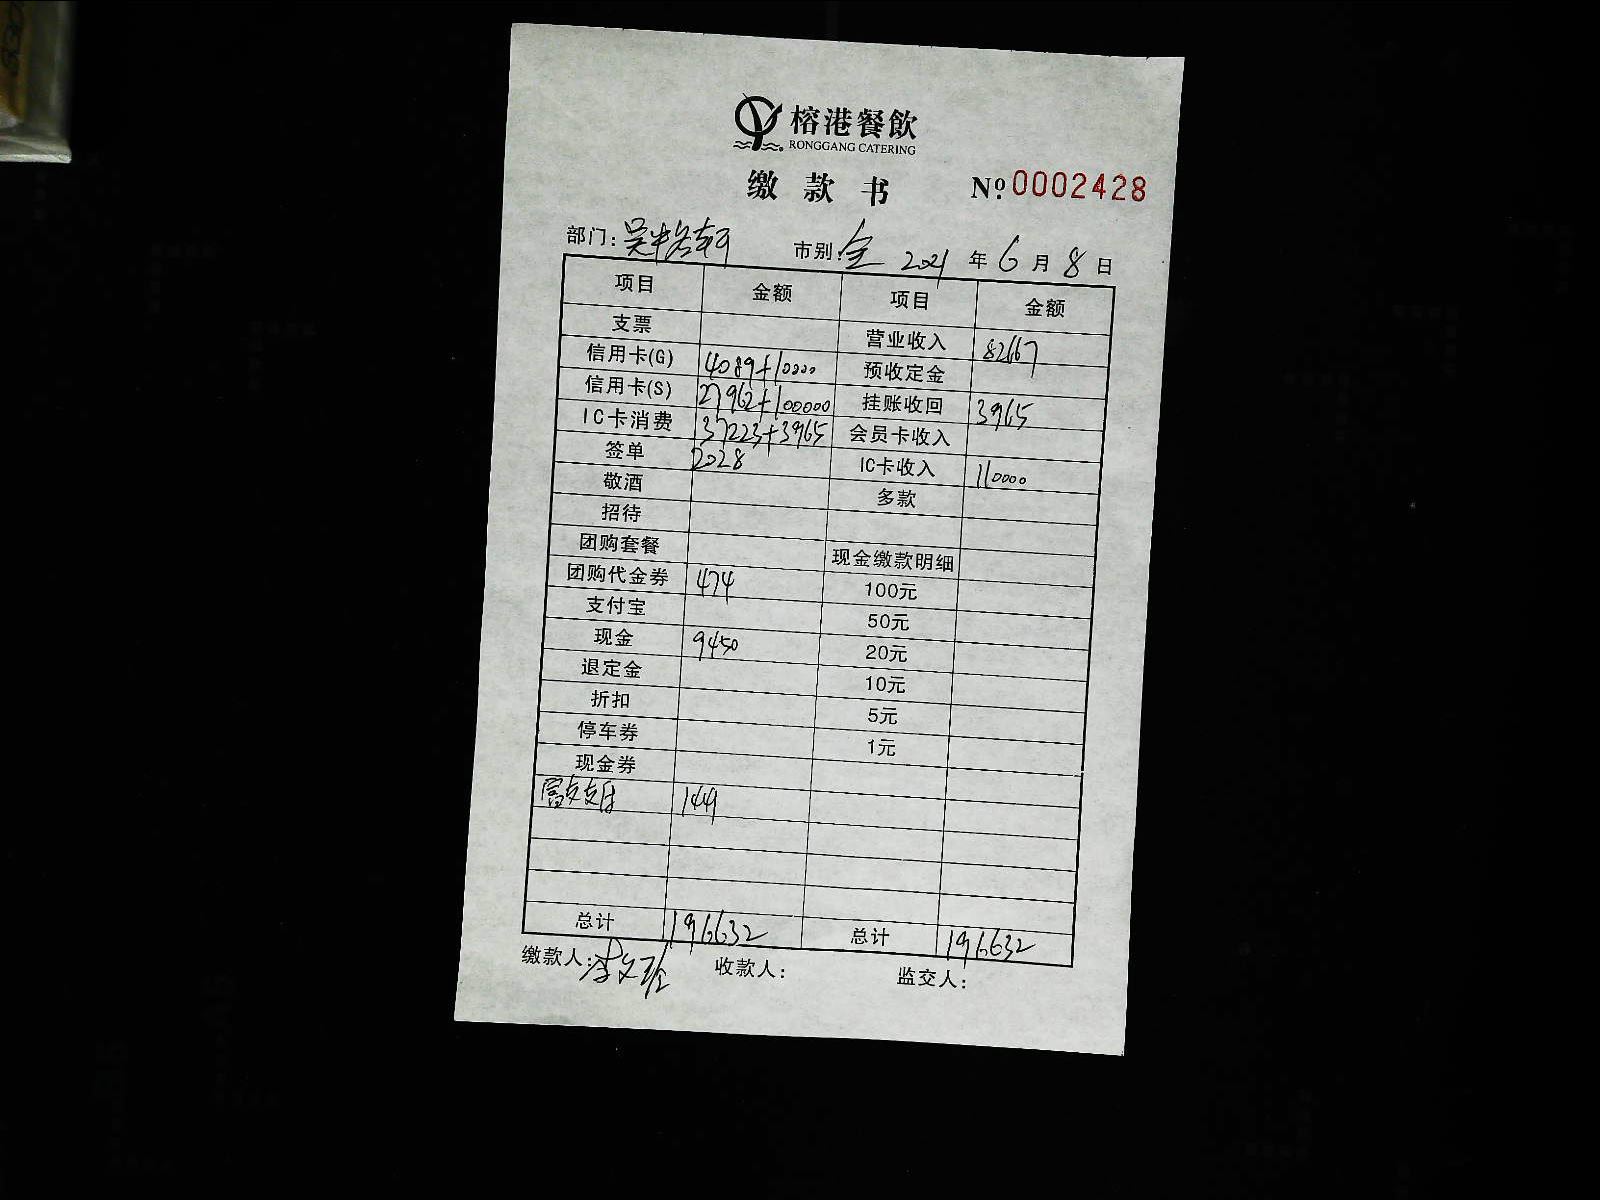 榕港餐飲
RONGGANG CATERING
缴款书 №.0002428
部门: 市别:全 2021 年 6 月 8 日
项目 金额 项目 金额
支票 营业收入 82667
信用卡(G) 4089+10000 预收定金
信用卡(S) 27962+100000 挂账收回 3965
IC卡消费 37223+3965 会员卡收入
签单 2028 IC卡收入 110000
敬酒 多款
招待
团购套餐 现金缴款明细
团购代金券 474 100元
支付宝 50元
现金 9450 20元
退定金 10元
折扣 5元
停车券 1元
现金券
富友支付 1441
总计 196632 总计 196632
缴款人: 收款人: 监交人: